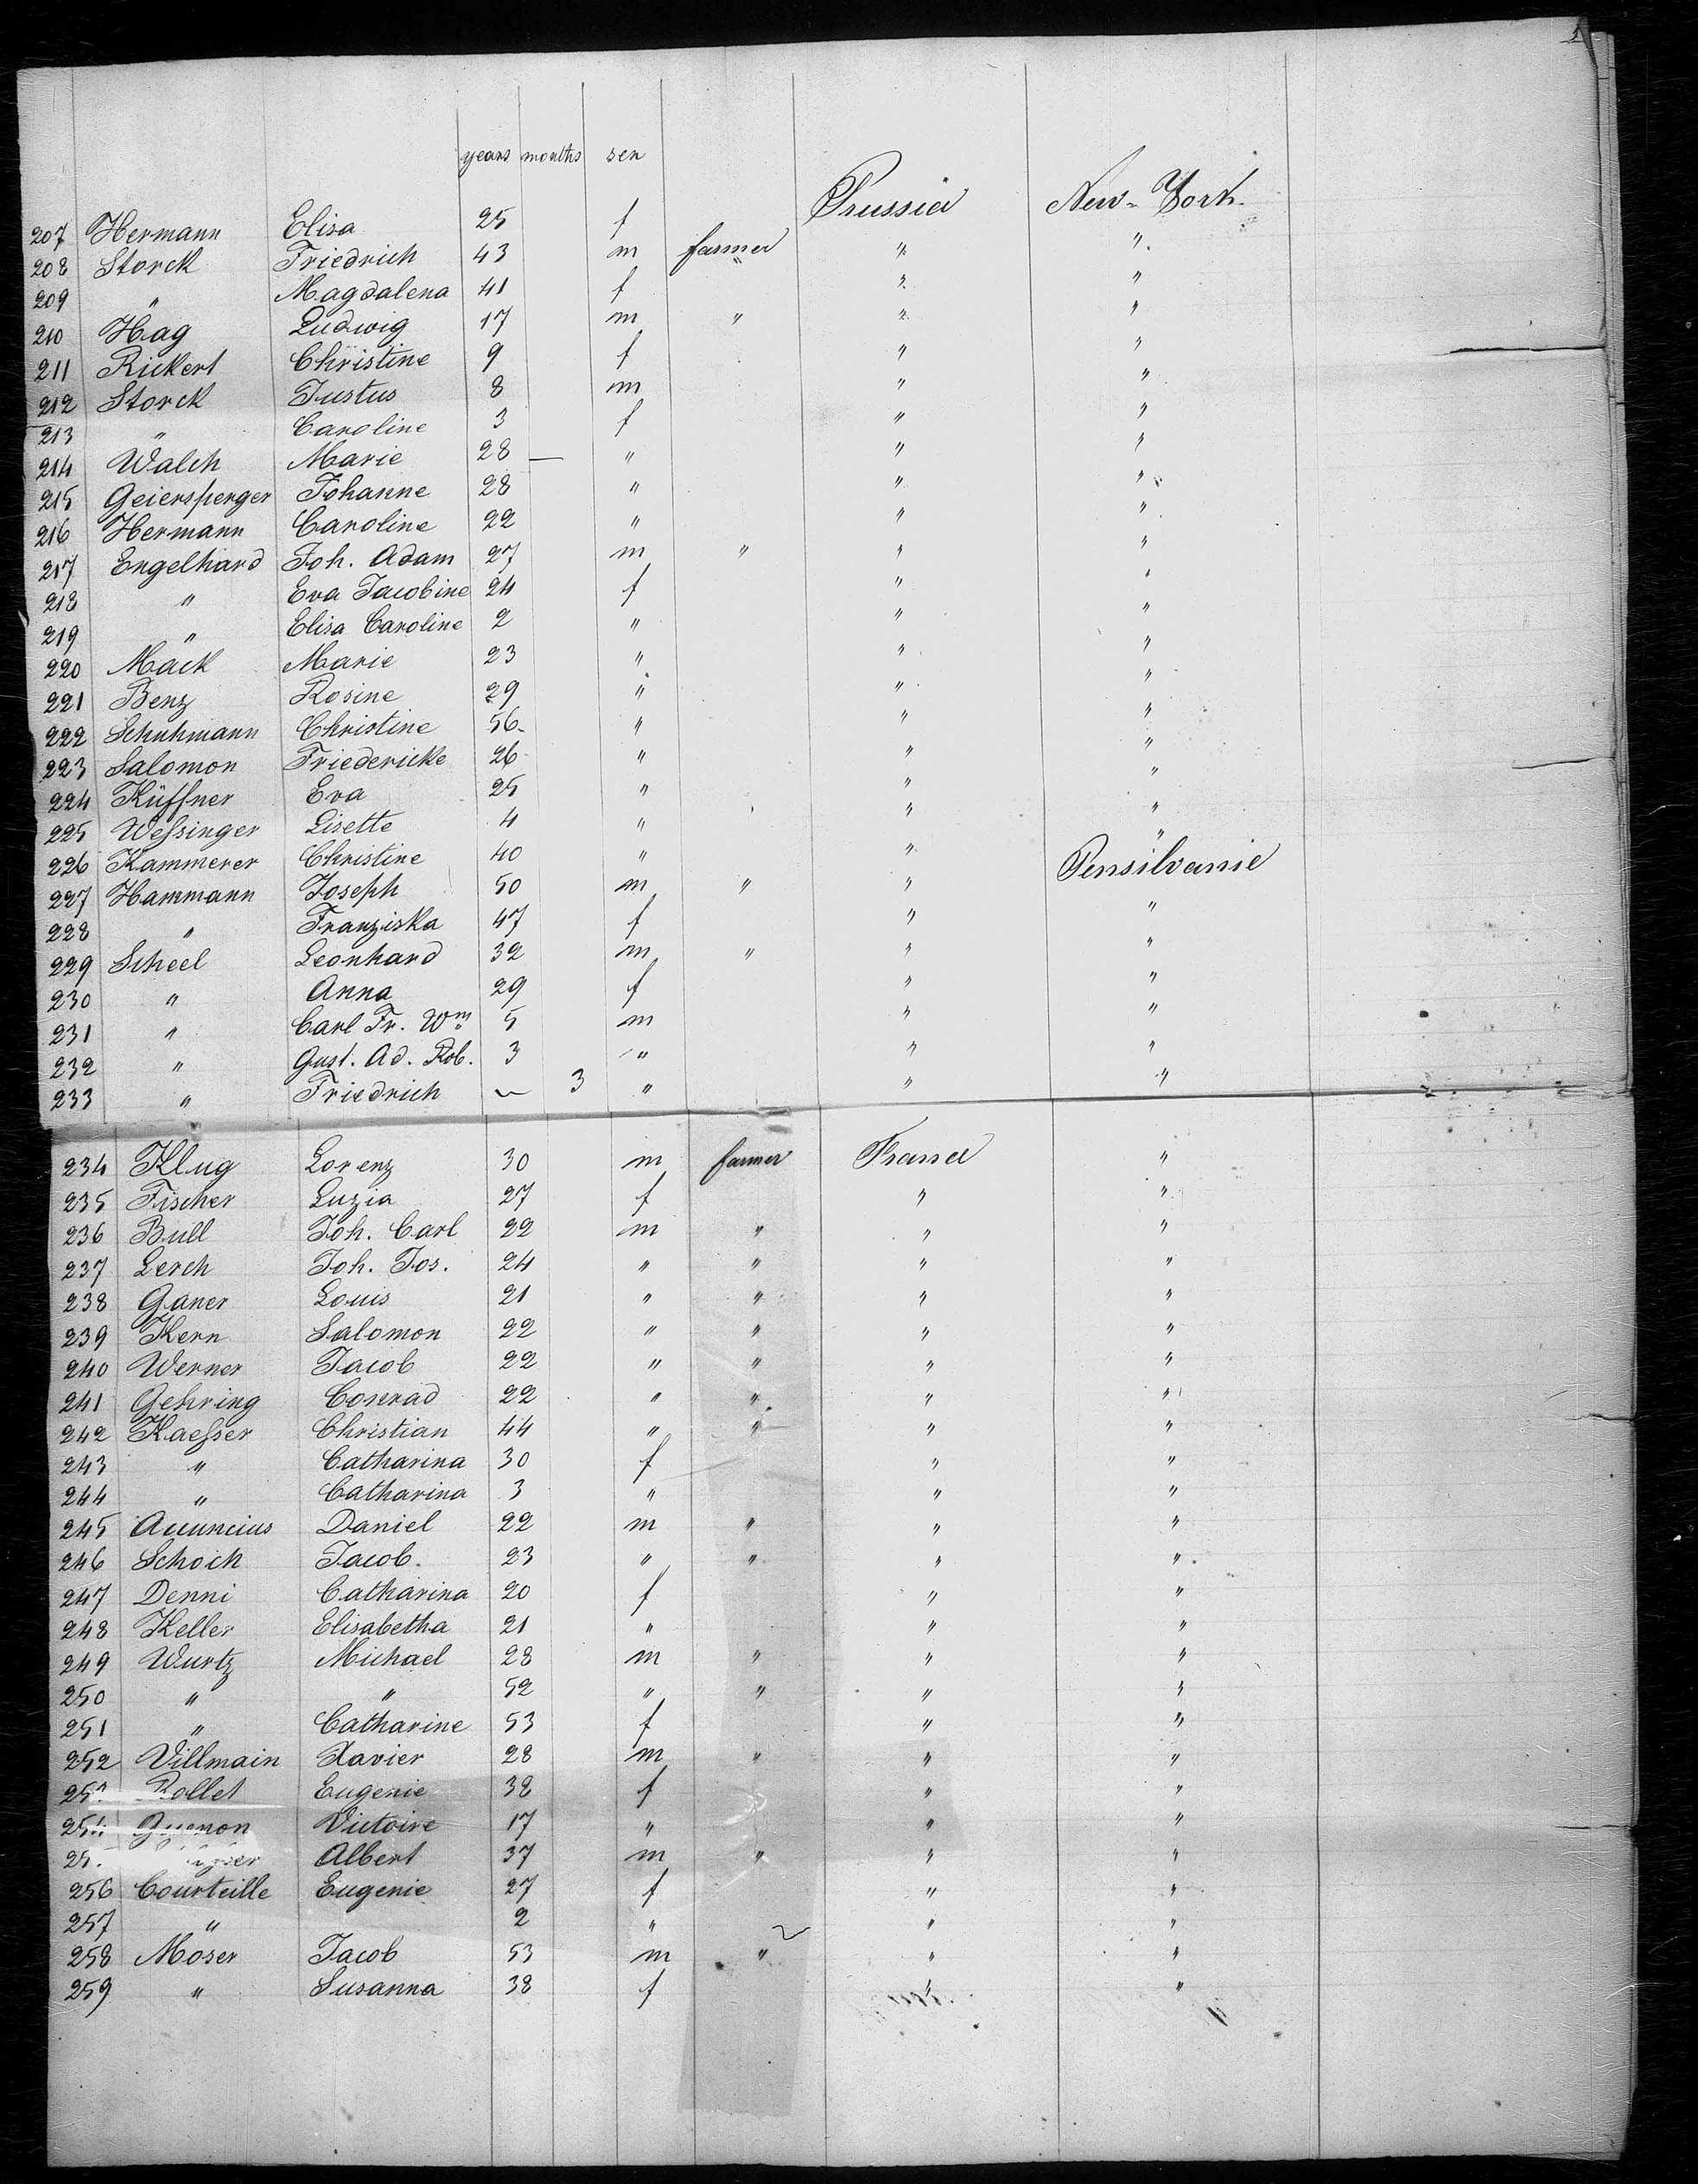 years months sex
207 Hermann Elisa 25 f Prussia New-York
208 Storck Friedrich 43 m farmer " "
209 " Magdalena 41 f " "
210 Hag Ludwig 17 m " " "
211 Rickert Christine 9 f " "
212 Storck Justus 8 m " "
213 " Caroline 3 f " "
214 Walch Marie 28 — " " "
215 Geiersperger Johanne 28 " " "
216 Hermann Caroline 22 " " "
217 Engelhard Joh. Adam 27 m " " "
218 " Eva Jacobine 24 f " "
219 " Elisa Caroline 2 " " "
220 Mack Marie 23 " " "
221 Benz Rosine 29 " " "
222 Schuhmann Christine 56 " " "
223 Salomon Friedericke 26 " " "
224 Küffner Eva 25 " " "
225 Weſsinger Lisette 4 " " "
226 Kammerer Christine 40 " " "
227 Hammann Joseph 50 m " " Pensilvanie
228 " Franziska 47 f " "
229 Scheel Leonhard 32 m " " "
230 " Anna 29 f " "
231 " Carl Fr. Wm 5 m " "
232 " Gust. Ad. Rob. 3 " " "
233 " Friedrich ~ 3 " " "
234 Klug Lorenz 30 m farmer France "
235 Fischer Luzia 27 f " "
236 Bull Joh. Carl 22 m " " "
237 Lerch Joh. Jos. 24 " " " "
238 Ganer Louis 21 " " " "
239 Kern Salomon 22 " " " "
240 Werner Jacob 22 " " " "
241 Gehring Conrad 22 " " " "
242 Kaeſser Christian 44 " " " "
243 " Catharina 30 f " "
244 " Catharina 3 " " "
245 Acuncius Daniel 22 m " " "
246 Schoch Jacob. 23 " " " "
247 Denni Catharina 20 f " "
248 Keller Elisabetha 21 " " "
249 Wurtz Michael 28 m " " "
250 " " 52 " " " "
251 " Catharine 53 f " "
252 Villmain Xavier 28 m " " "
Rollet Eugenie 38 f " "
254 Guenon Victoire 17 " " "
Albert 37 m " " "
256 Courteille Eugenie 27 f " "
257 " 2 " " "
258 Moser Jacob 53 m " " "
259 " Susanna 38 f " "